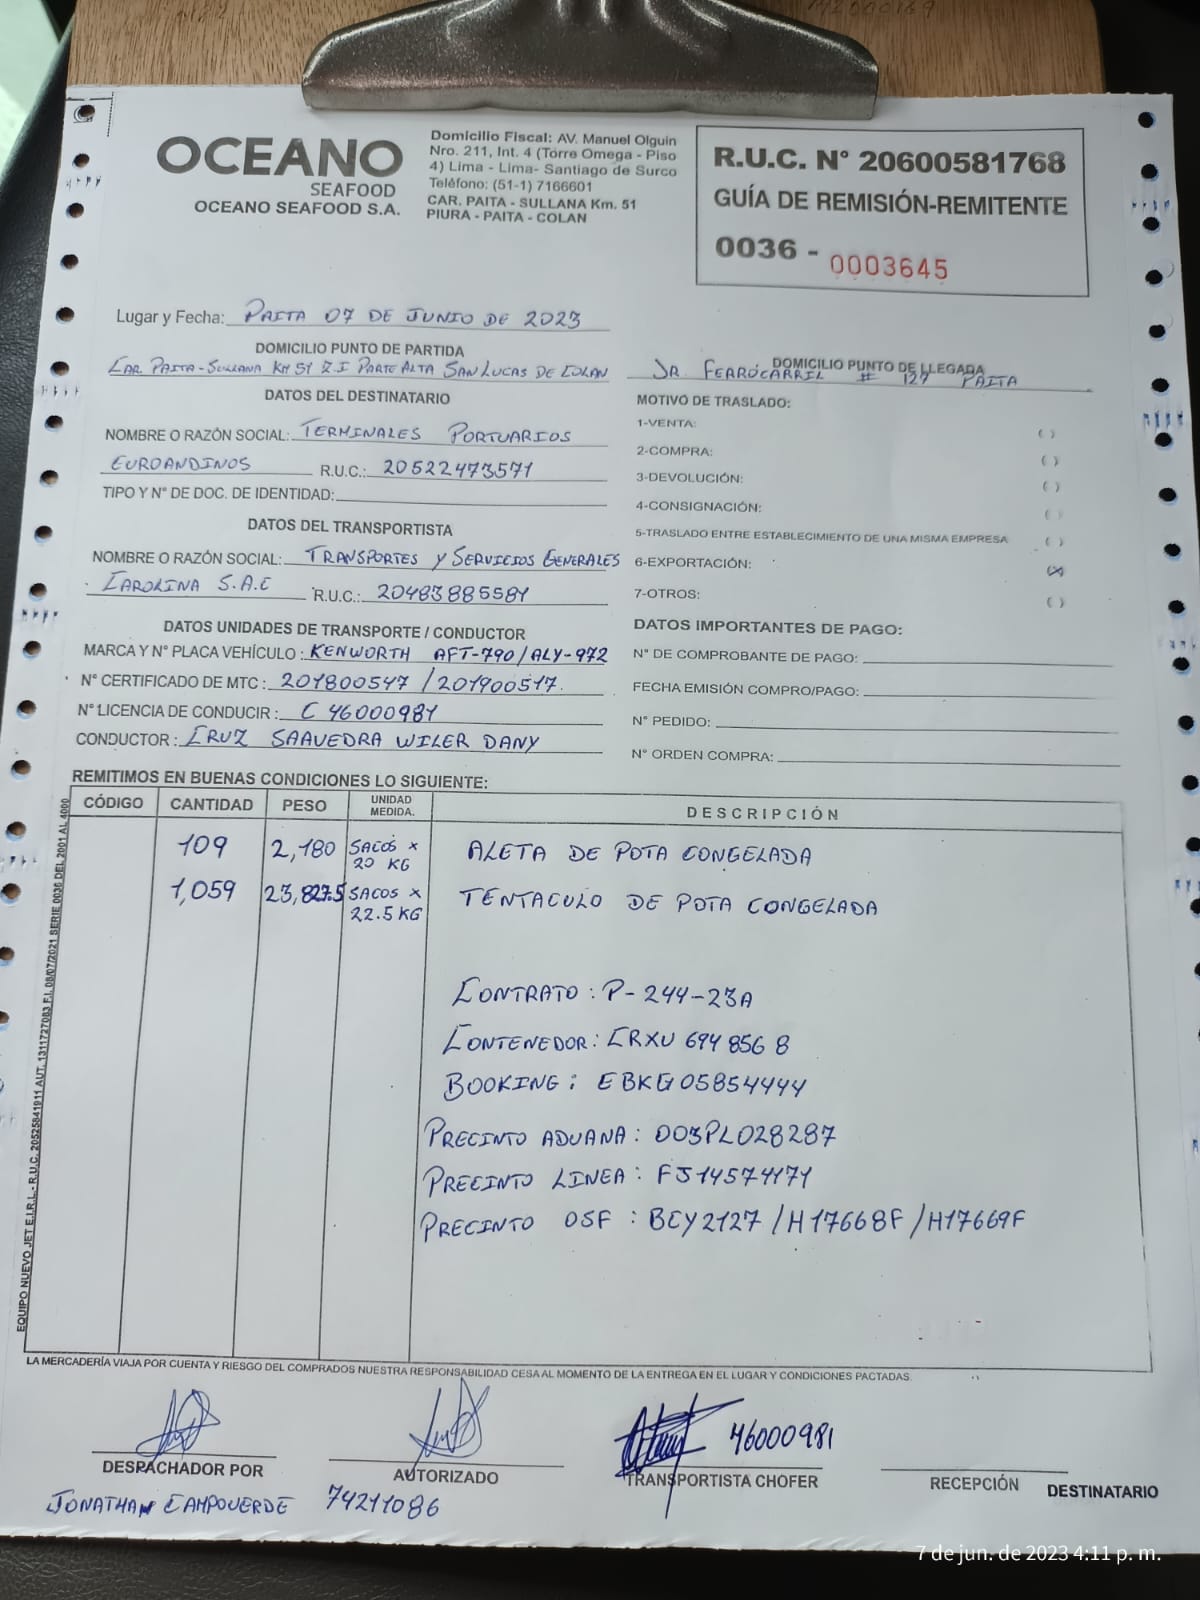 OCEANO
SEAFOOD
OCEANO SEAFOOD S.A.
Domicilio Fiscal: AV. Manuel Olguin
Nro. 211, Int. 4 (Torre Omega - Piso
4) Lima - Lima- Santiago de Surco
Teléfono: (51-1) 7166601
CAR. PAITA - SULLANA Km. 51
PIURA - PAITA - COLAN
R.U.C. N° 20600581768
GUÍA DE REMISIÓN-REMITENTE
0036 - 0003645
Lugar y Fecha: PAITA 07 DE JUNIO DE 2023
DOMICILIO PUNTO DE PARTIDA
CAR. PAITA-SULLANA KM 51 Z.I PARTE ALTA SAN LUCAS DE COLAN
DOMICILIO PUNTO DE LLEGADA
JR FERROCARRIL # 127 PAITA
DATOS DEL DESTINATARIO
NOMBRE O RAZÓN SOCIAL: TERMINALES PORTUARIOS
EUROANDINOS R.U.C.: 20522473571
TIPO Y N° DE DOC. DE IDENTIDAD:
DATOS DEL TRANSPORTISTA
NOMBRE O RAZÓN SOCIAL: TRANSPORTES Y SERVICIOS GENERALES
CAROLINA S.A.C R.U.C.: 20483885581
DATOS UNIDADES DE TRANSPORTE / CONDUCTOR
MARCA Y N° PLACA VEHÍCULO: KENWORTH AFT-790/ALY-972
N° CERTIFICADO DE MTC: 201800547 / 201900517
N° LICENCIA DE CONDUCIR: C 46000981
CONDUCTOR: CRUZ SAAVEDRA WILER DANY
MOTIVO DE TRASLADO:
1-VENTA: ( )
2-COMPRA: ( )
3-DEVOLUCIÓN: ( )
4-CONSIGNACIÓN: ( )
5-TRASLADO ENTRE ESTABLECIMIENTO DE UNA MISMA EMPRESA ( )
6-EXPORTACIÓN: (X)
7-OTROS: ( )
DATOS IMPORTANTES DE PAGO:
N° DE COMPROBANTE DE PAGO:
FECHA EMISIÓN COMPRO/PAGO:
N° PEDIDO:
N° ORDEN COMPRA:
REMITIMOS EN BUENAS CONDICIONES LO SIGUIENTE:
CÓDIGO CANTIDAD PESO UNIDAD MEDIDA. DESCRIPCIÓN
109 2,180 SACOS x 20 KG ALETA DE POTA CONGELADA
1,059 23,827.5 SACOS x 22.5 KG TENTACULO DE POTA CONGELADA
CONTRATO: P-244-23A
CONTENEDOR: CRXU 694 856 8
BOOKING: EBKG05854444
PRECINTO ADUANA: 003PL028287
PRECINTO LINEA: FJ14574171
PRECINTO OSF: BCY2127 / H17668F / H17669F
EQUIPO NUEVO JET E.I.R.L.- R.U.C. 20525841911 AUT. 1311727083 F.I. 08/07/2021 SERIE 0036 DEL 2001 AL 4000
LA MERCADERÍA VIAJA POR CUENTA Y RIESGO DEL COMPRADOS NUESTRA RESPONSABILIDAD CESA AL MOMENTO DE LA ENTREGA EN EL LUGAR Y CONDICIONES PACTADAS.
46000981
DESPACHADOR POR
AUTORIZADO
TRANSPORTISTA CHOFER
RECEPCIÓN DESTINATARIO
JONATHAN CAMPOVERDE 74211086
7 de jun. de 2023 4:11 p. m.